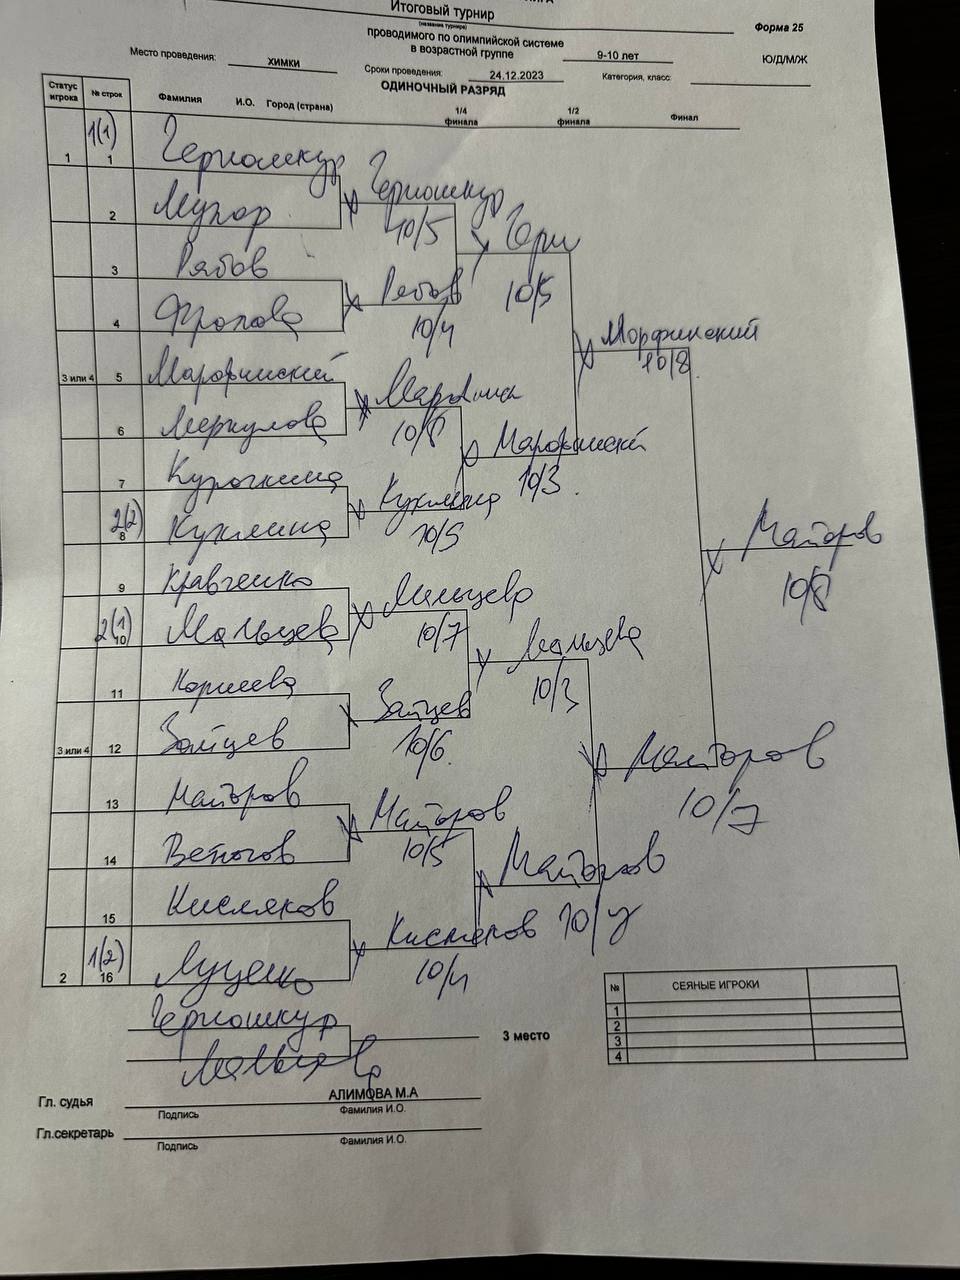 Итоговый турнир
(название турнира)
Форма 25
проводимого по олимпийской системе
в возрастной группе 9-10 лет Ю/Д/М/Ж
Место проведения: ХИМКИ Сроки проведения: 24.12.2023 Категория, класс:
ОДИНОЧНЫЙ РАЗРЯД
Статус игрока № строк Фамилия И.О. Город (страна) 1/4 финала 1/2 финала Финал
1 1(1) 1 Черношкур
Черношкур
2 Мухор
10/5
Черн
3 Рябов
Рябов
10/5
4 Фролова
10/4
Морфинский
10/8
3 или 4 5 Марфинский
6 Меркулова
10/8
Марфинский
7 Курочкина
10/3
2(2) 8 Куклина
Куклина
10/5
Майоров
10/8
9 Кравченко
Мальцева
2(1) 10 Мальцева
10/7
Мальцева
11
10/3
Зайцев
3 или 4 12 Зайцев
10/6
Майоров
10/7
13 Майоров
Майоров
14
10/5
Майоров
15 Кисляков
Кисляков
1(2)
2 16 Луценко
10/4
Черношкур
3 место
№ СЕЯНЫЕ ИГРОКИ
1
2
3
4
Гл. судья АЛИМОВА М.А
Подпись Фамилия И.О.
Гл.секретарь
Подпись Фамилия И.О.